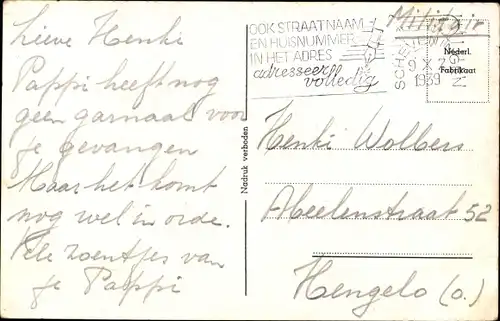 Lieve Henki
Pappi heeft nog
geen garnaal voor
je gevangen
Maar het komt
nog wel in orde.
Vele zoentjes van
je Pappi
Nadruk verboden
OOK STRAATNAAM
EN HUISNUMMER
IN HET ADRES
adresseer
volledig
9 X
1939
Militair
Nederl.
Fabrikaat
Henki Wolbers
Abeelenstraat 52
Hengelo (O.)